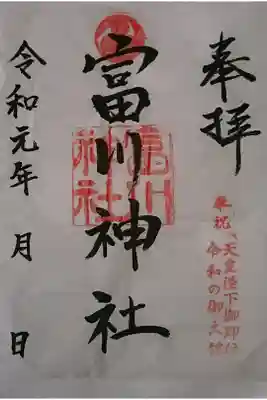 奉拝
奉祝 天皇陛下御即位
令和の御大礼
富川神社
富川
神社
令和元年 月 日